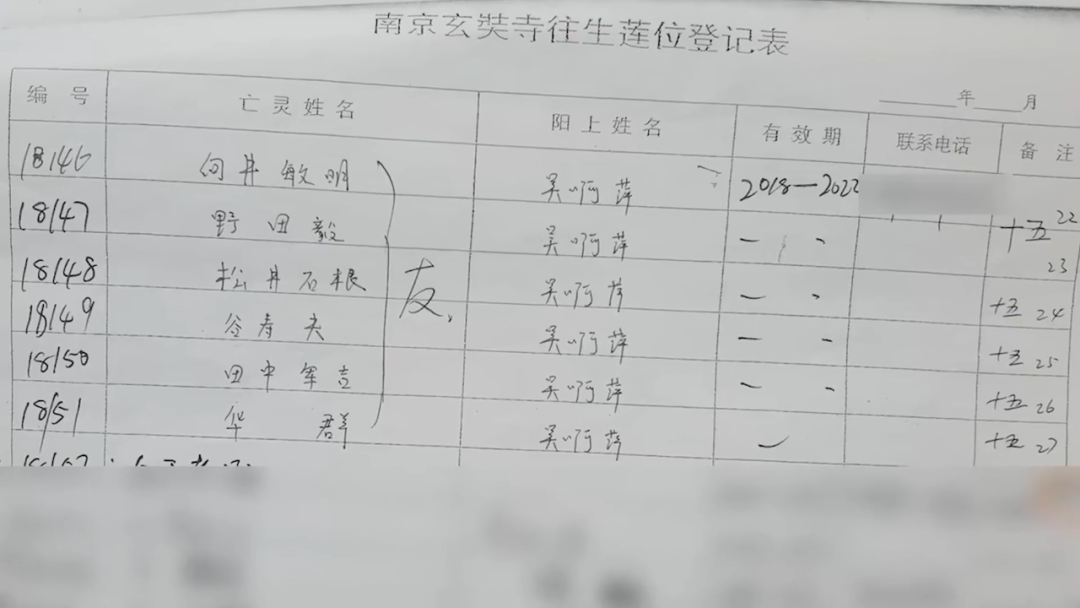 南京玄奘寺往生莲位登记表
年 月
编 号 亡灵姓名 阳上姓名 有效期 联系电话 备 注
18146 向井敏明 吴啊萍 2018—2022 十五 22
18147 野田毅 吴啊萍 — - 23
18148 松井石根 吴啊萍 — - 十五 24
18149 谷寿夫 吴啊萍 — - 十五 25
18150 田中军吉 吴啊萍 — - 十五 26
18151 华 群 吴啊萍 — 十五 27
友